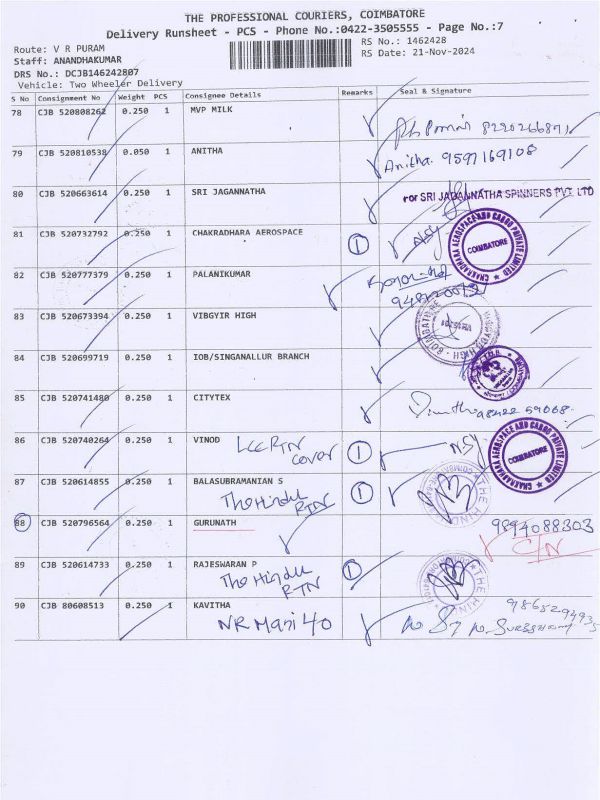 THE PROFESSIONAL COURIERS, COIMBATORE
Delivery Runsheet - PCS - Phone No.:0422-3505555 - Page No.:7
Route: V R PURAM
RS No.: 1462428
Staff: ANANDHAKUMAR
RS Date: 21-Nov-2024
DRS No.: DCJB146242807
Vehicle: Two Wheeler Delivery
S No Consignment No Weight PCS Consignee Details Remarks Seal & Signature
78 CJB 520808262 0.250 1 MVP MILK
79 CJB 520810538 0.050 1 ANITHA Anitha. 9597169108
80 CJB 520663614 0.250 1 SRI JAGANNATHA For SRI JAGANNATHA SPINNERS PVT LTD
81 CJB 520732792 0.250 1 CHAKRADHARA AEROSPACE 1 CHAKRADHARA AEROSPACE AND CARGO PRIVATE LIMITED COIMBATORE
82 CJB 520777379 0.250 1 PALANIKUMAR
83 CJB 520673394 0.250 1 VIBGYIR HIGH
84 CJB 520699719 0.250 1 IOB/SINGANALLUR BRANCH
85 CJB 520741480 0.250 1 CITYTEX
86 CJB 520740264 0.250 1 VINOD RTN cover 1 CHAKRADHARA AEROSPACE AND CARGO PRIVATE LIMITED COIMBATORE
87 CJB 520614855 0.250 1 BALASUBRAMANIAN S 1
The Hindu RTN
88 CJB 520796564 0.250 1 GURUNATH 9894088303
C/N
89 CJB 520614733 0.250 1 RAJESWARAN P 1
The Hindu RTN
90 CJB 80608513 0.250 1 KAVITHA
NR Mani 40